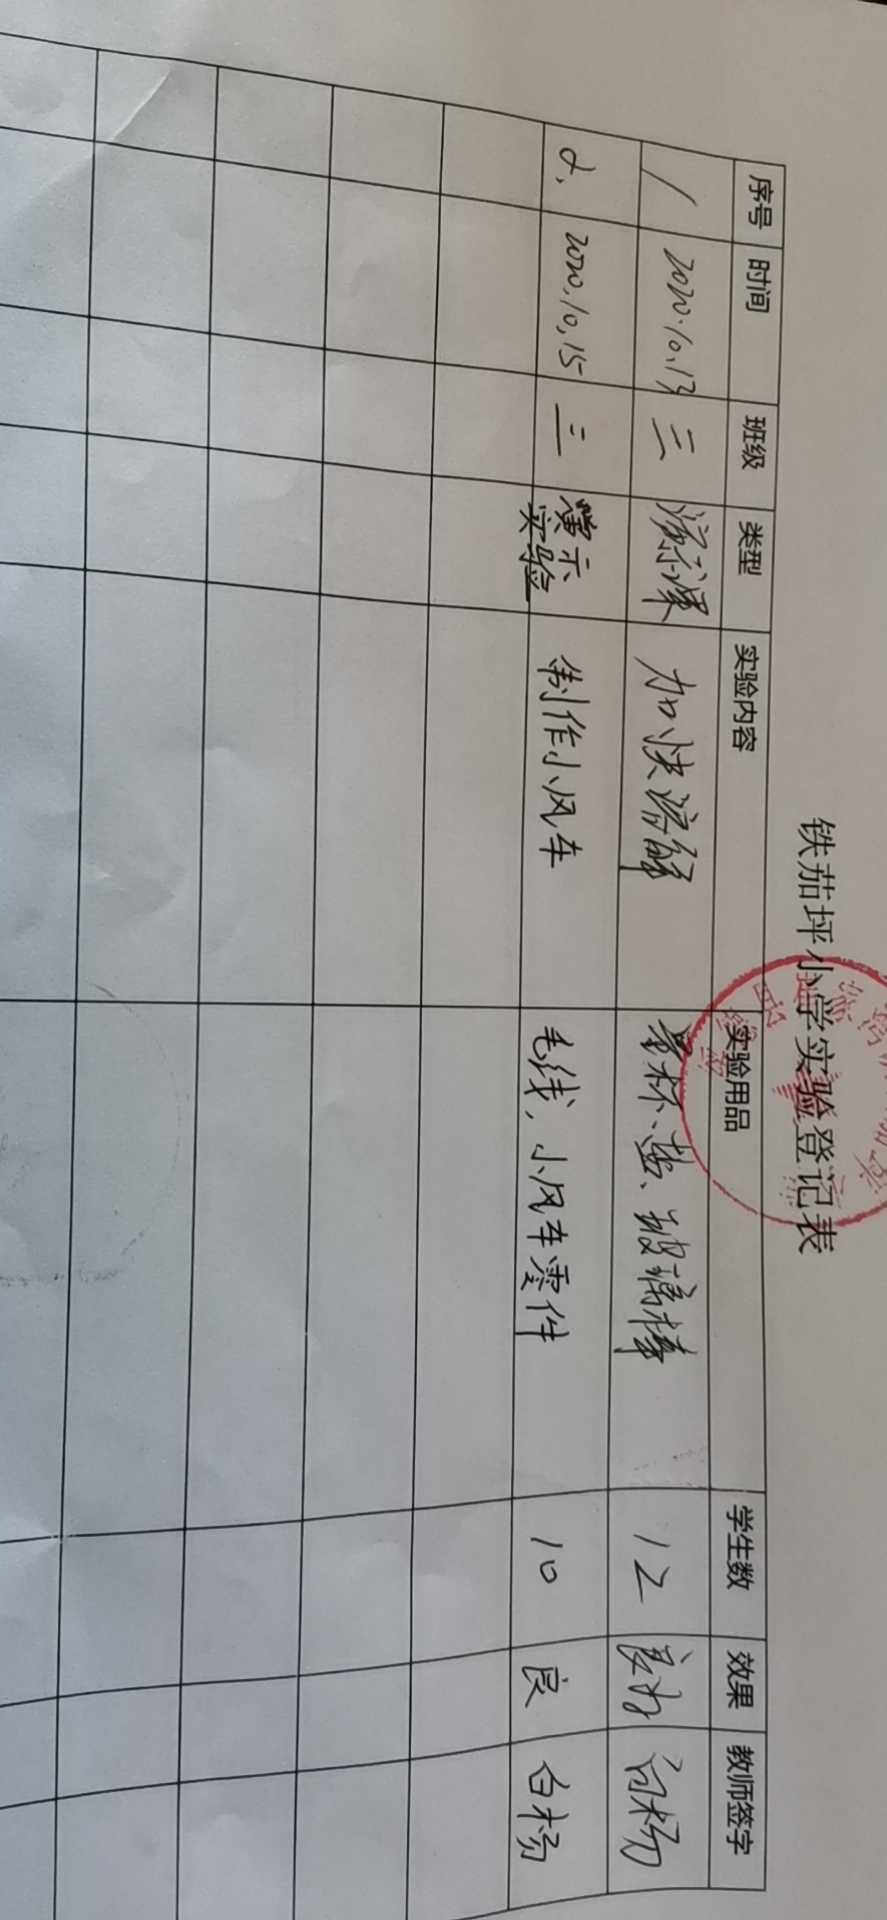 铁茄坪小学实验登记表
序号 时间 班级 类型 实验内容 实验用品 学生数 效果 教师签字
1 2020.10.13 三 演示课 加快溶解 量杯、盐、玻璃棒 12 良好 白杨
2. 2020.10.15 三 演示实验 制作小风车 毛线,小风车零件 10 良 白杨